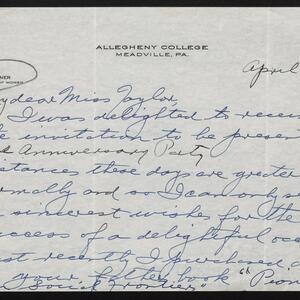 ALLEGHENY COLLEGE
MEADVILLE, PA.
NER
OF WOMEN
April
y dear Miss Taylor,
I was delighted to recei
e invitation to be presen
d Anniversary Party
istances these days are greater
rmally and so I can only s
sincerest wishes for the
uccess of a delightful oc
st recently I purchased a
your father's book "Pion
Social Frontier"